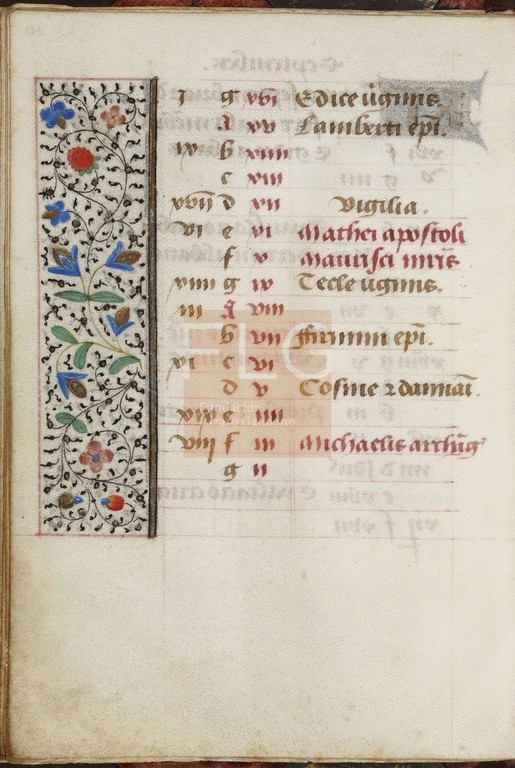 g xvi Edice ũginis.
A xv Lamberti ep̄i.
b xiiii
c xiii
xvii d xii Vigilia.
vi e xi Mathei apostoli
f x Mauricii m̄ris
xiiii g ix Tecle ũginis.
iii A viii
b vii ffirmini ep̄i.
xi c vi
d v Cosme ⁊ damiani.
xix e iiii
viii f iii Michaelis archãg
g ii